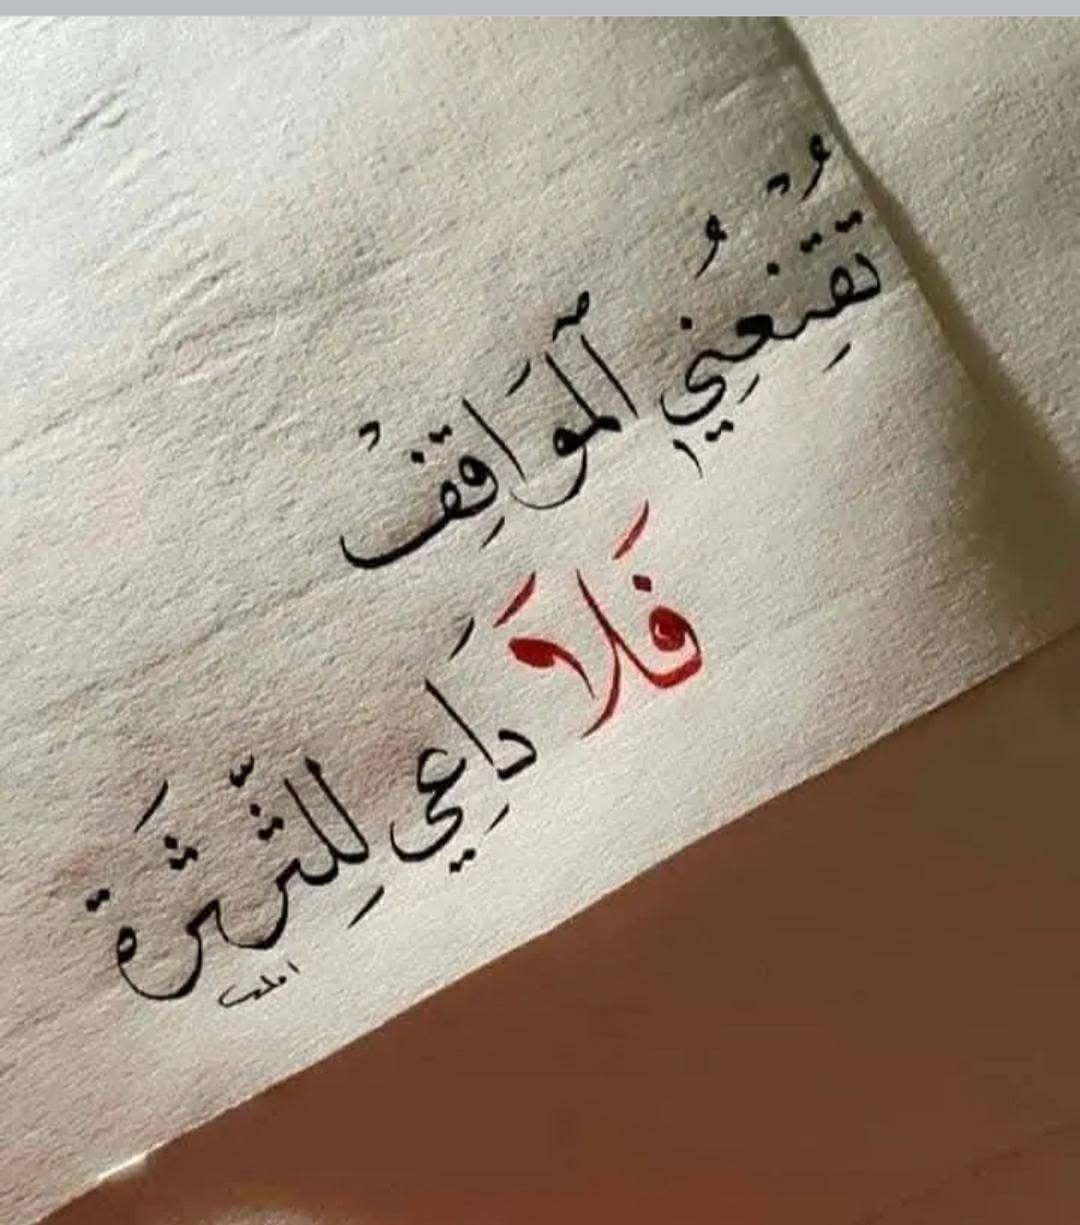 تُقْنِعُنِي ٱلْمَوَاقِفْ
فَلَا دَاعِي لِلثَّرْثَرَة